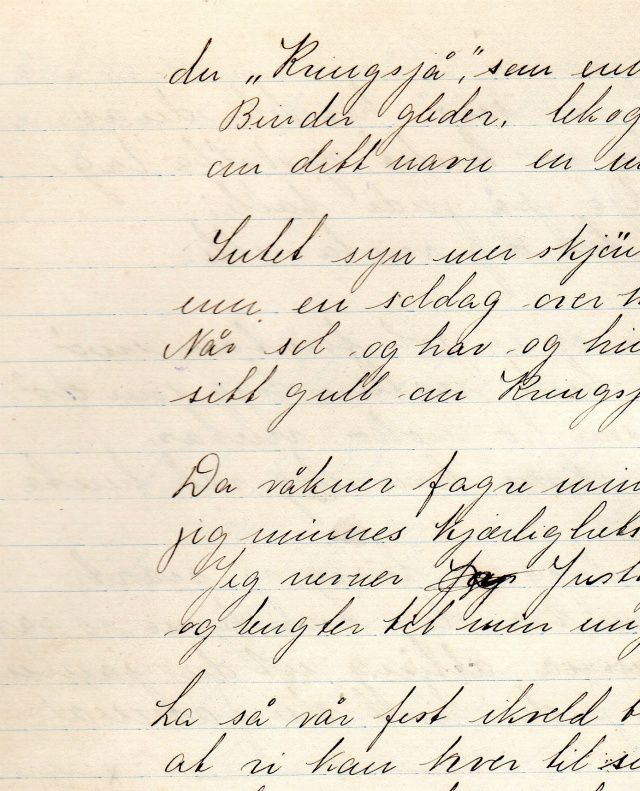 du „Kringsjå", som en
Binder gleder, lek og
om ditt navn en
Intet syn mer skjön
enn en soldag over
Når sol og hav og
sitt gull om Kringsj
Da våkner fagre min
jeg minnes kjærlighets
Jeg nevner
og lengter til min ung
La så vår fest ikveld
at vi kan hver til